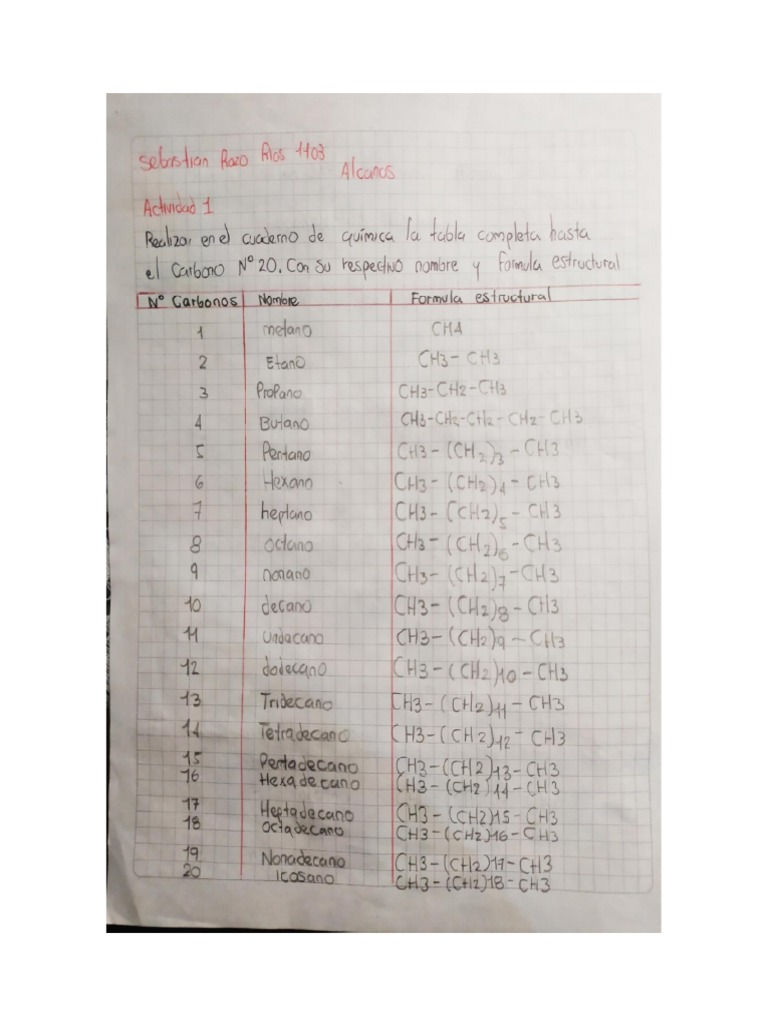 Sebastian Razo Rios 1103
Alcanos
Actividad 1
Realizar en el cuaderno de química la tabla completa hasta
el Carbono N° 20. Con su respectivo nombre y formula estructural
N° Carbonos Nombre Formula estructural
1 metano CH4
2 Etano CH3- CH3
3 Propano CH3-CH2-CH3
4 Butano CH3-CH2-CH2-CH2-CH3
5 Pentano CH3-(CH2)3-CH3
6 Hexano CH3-(CH2)4-CH3
7 heptano CH3-(CH2)5-CH3
8 octano CH3-(CH2)6-CH3
9 nonano CH3-(CH2)7-CH3
10 decano CH3-(CH2)8-CH3
11 undacano CH3-(CH2)9-CH3
12 dodecano CH3-(CH2)10-CH3
13 Tridecano CH3-(CH2)11-CH3
14 Tetradecano CH3-(CH2)12-CH3
15 Pentadecano CH3-(CH2)13-CH3
16 Hexadecano CH3-(CH2)14-CH3
17 Heptadecano CH3-(CH2)15-CH3
18 octadecano CH3-(CH2)16-CH3
19 Nonadecano CH3-(CH2)17-CH3
20 Icosano CH3-(CH2)18-CH3